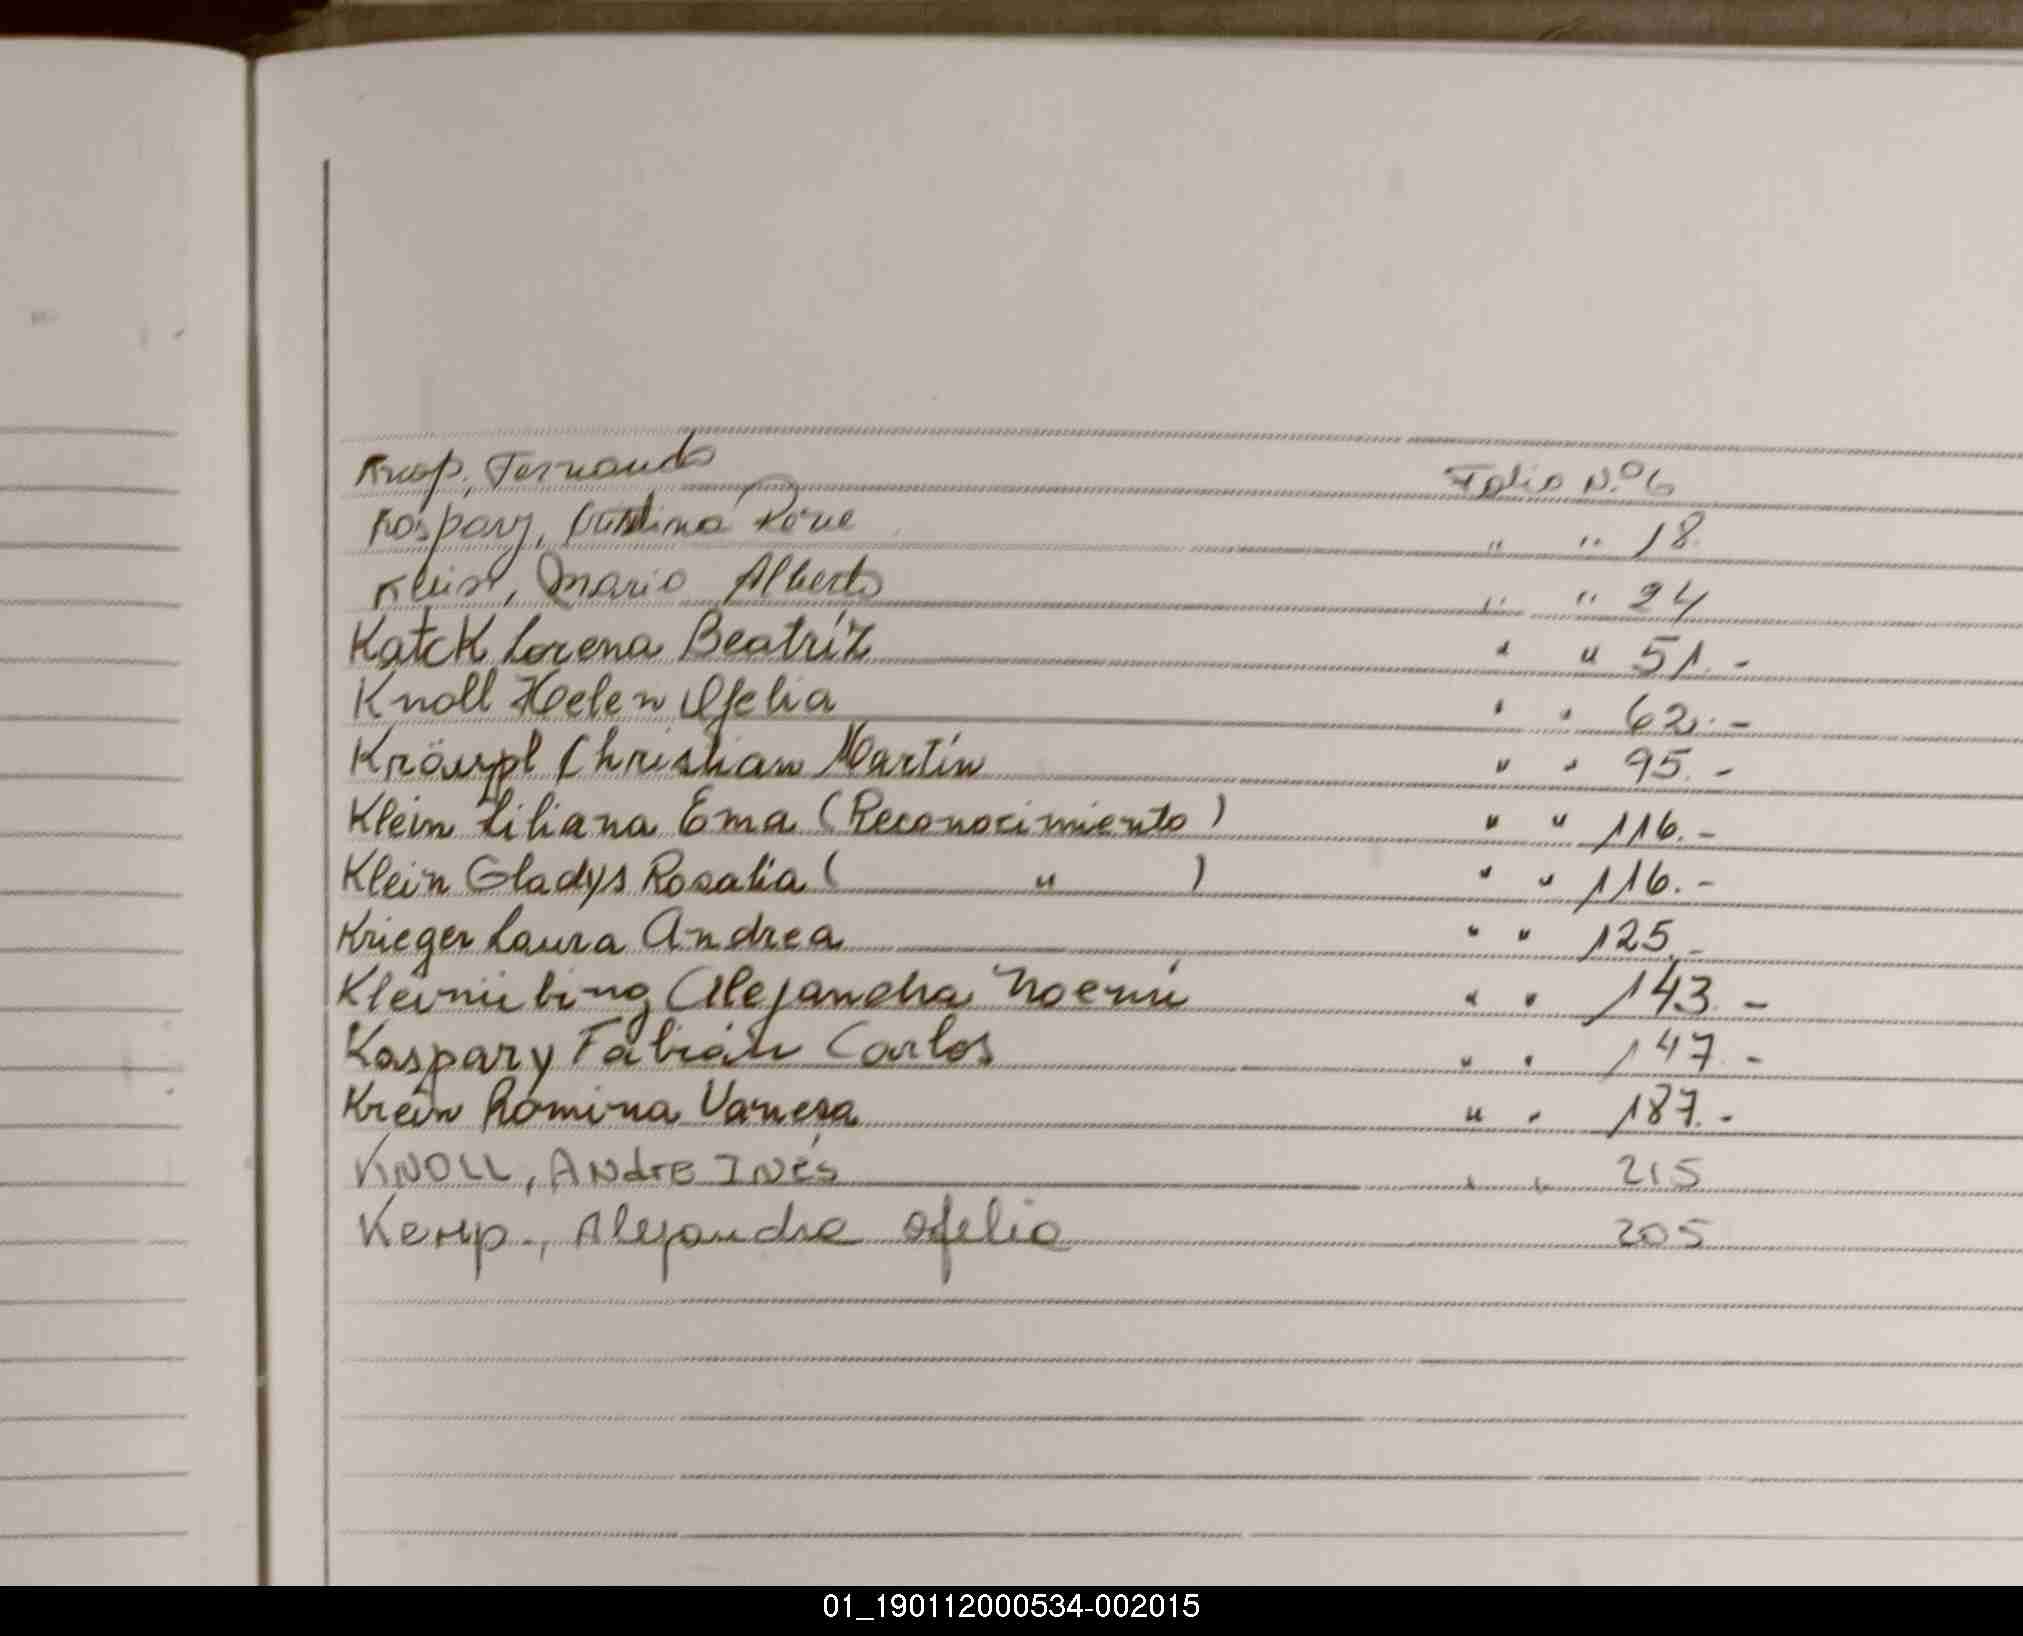 Knop, Fernando Folio N.º 6
Kospary, Cristina Rene " " 18
Klein, Mario Alberto " " 24
Katck Lorena Beatriz " " 51.-
Knoll Helen Ofelia " " 62.-
Krömpl Christian Martín " " 95.-
Klein Liliana Ema (Reconocimiento) " " 116.-
Klein Gladys Rosalia ( " ) " " 116.-
Krieger Laura Andrea " " 125.-
Kleinübing Alejandra Noemí " " 143.-
Kaspary Fabián Carlos " " 147.-
Krein Romina Vanesa " " 187.-
KNOLL, ANdrE INés " " 215
Kemp., Alejandra Ofelia 205
01_190112000534-002015